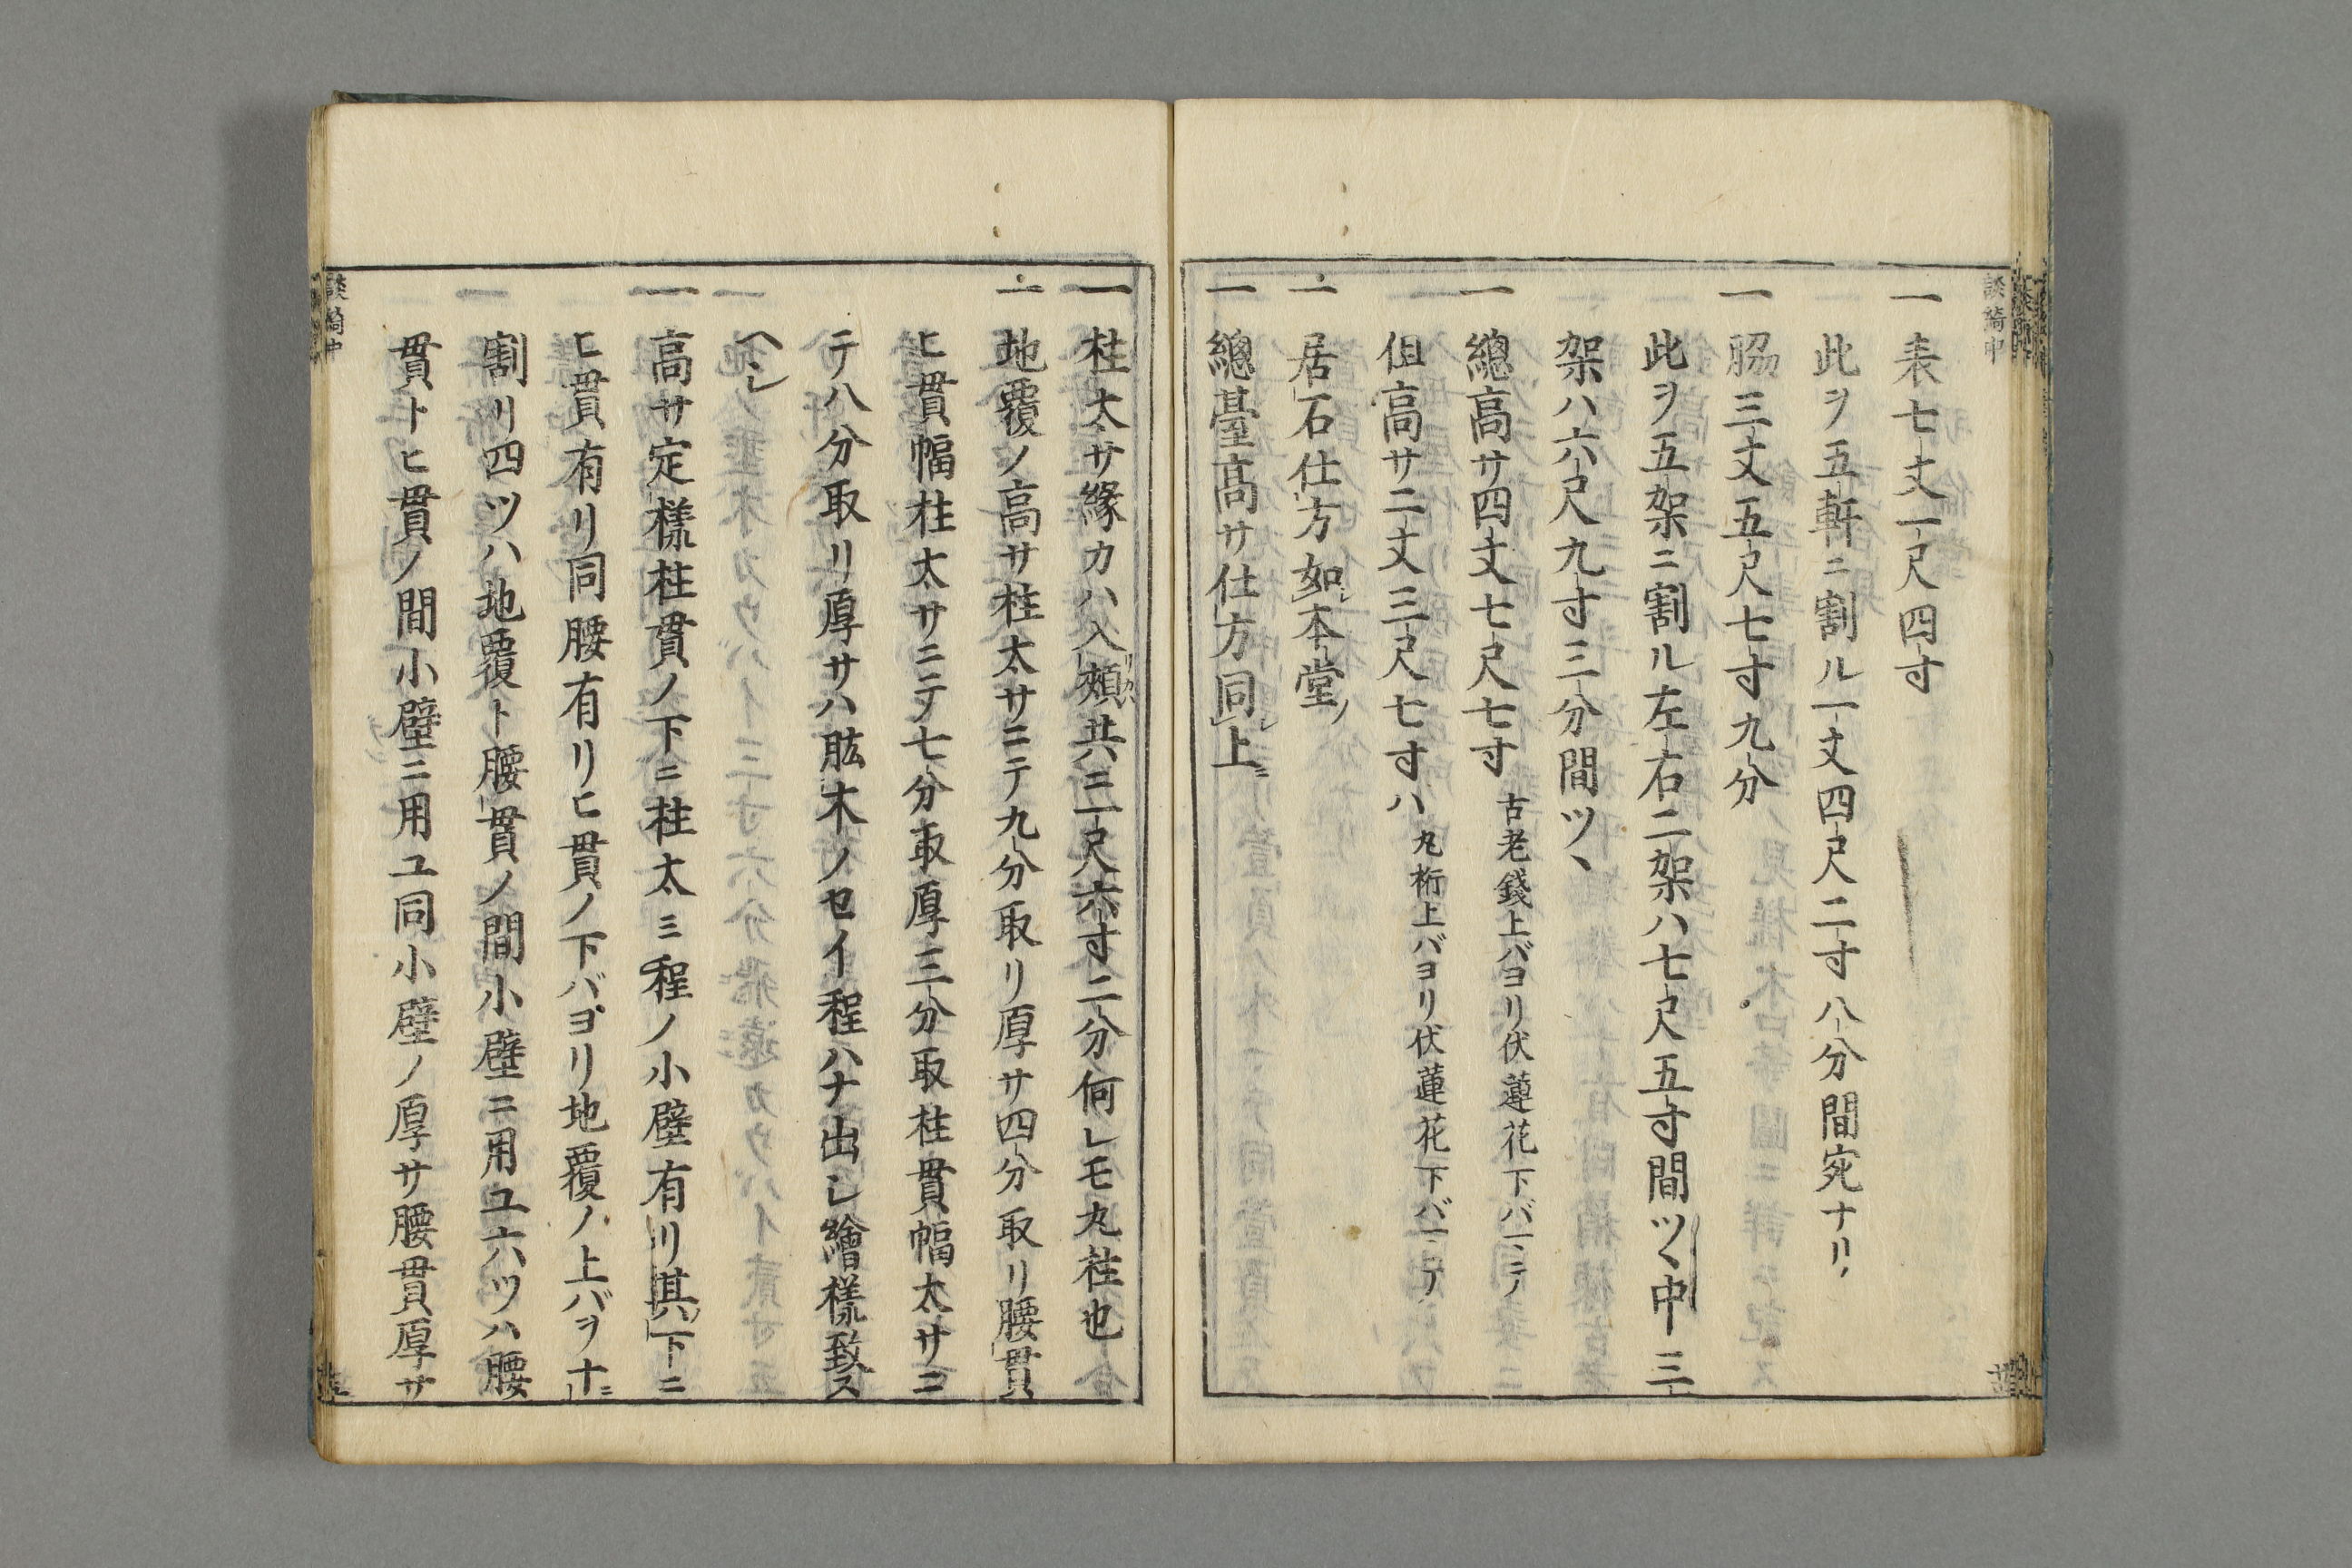 一表七丈一尺四寸
此ヲ五軒ニ割ル一丈四尺二寸八分間宛ナリ
一脇三丈五尺七寸九分
此ヲ五架ニ割ル左右二架ハ七尺五寸間ツヽ中三
架ハ六尺九寸三分間ツヽ
一總高サ四丈七尺七寸古老錢上バヨリ伏蓮花下バニテノ
但高サ二丈三尺七寸ハ丸桁上バヨリ伏蓮花下バニテノ
一居石仕方如本堂ノ
一總臺高サ仕方同レ上ニ
一柱太サ緣カハ入頰共ニ一尺六寸二分何レモ丸柱也
一地覆ノ高サ柱太サニテ九分取リ厚サ四分取リ腰貫
ヒ貫幅柱太サニテ七分取厚三分取柱貫幅太サニ
テ八分取リ厚サハ肱木ノセイ程ハナ出シ繪樣致ス
ヘシ
一高サ定樣柱貫ノ下ニ柱太ミ程ノ小壁有リ其ノ下ニ
ヒ貫有リ同腰有リヒ貫ノ下バヨリ地覆ノ上バヲ十ニ
割リ四ツハ地覆ト腰貫ノ間小壁ニ用ユ六ツハ腰
貫トヒ貫ノ間小壁ニ用ユ同小壁ノ厚サ腰貫厚サ
談綺中
談綺中